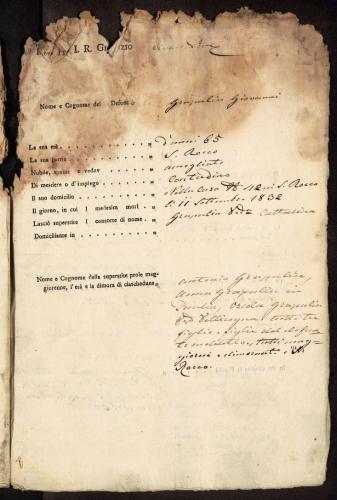 I. R. Giudizio
Nome e Cognome del Defonto Grapulin Giovanni
La sua età d'anni 65
La sua patria S. Rocco
Nobile, sposo o vedov ammogliato
Di mestiere o d'impiego Contadino
Il suo domicilio Nella casa N 42 in S. Rocco
Il giorno, in cui medesim morì li 11 Settembre 1832
Lasciò superstite consorte di nome Grapulin Catterina
Domiciliante in
Nome e Cognome della superstite prole mag-
giorenne, l'età e la dimora di ciascheduno
Antonio Grapulin,
Anna Grapulin in
Orsola Grapulin
tutti tre
figlio e figlie del defon-
to, tutti mag-
giorni e dimoranti
Rocco.